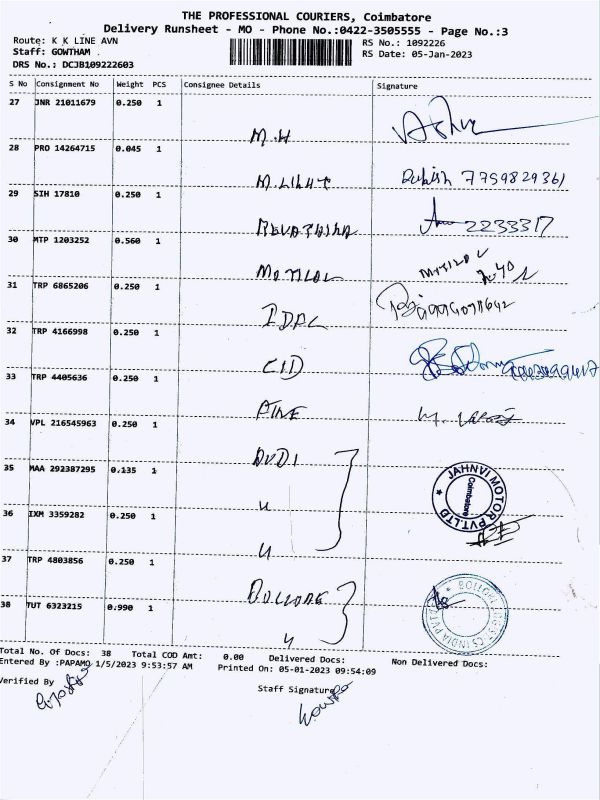 THE PROFESSIONAL COURIERS, Coimbatore
Delivery Runsheet - MO - Phone No.:0422-3505555 - Page No.:3
Route: K K LINE AVN
RS No.: 1092226
Staff: GOWTHAM .
RS Date: 05-Jan-2023
DRS No.: DCJB109222603
S No Consignment No Weight PCS Consignee Details Signature
27 JNR 21011679 0.250 1
M.H
28 PRO 14264715 0.045 1
7759829361
29 SIH 17810 0.250 1
2233317
30 MTP 1203252 0.560 1
MOTILAL
31 TRP 6865206 0.250 1
IDPL
32 TRP 4166998 0.250 1
CID
33 TRP 4405636 0.250 1
PINE
34 VPL 216545963 0.250 1
AUDI
35 MAA 292387295 0.135 1
JAHNVI MOTOR PVT.LTD
Coimbatore
36 IXM 3359282 0.250 1
37 TRP 4803856 0.250 1
38 TUT 6323215 0.990 1
Total No. Of Docs: 38 Total COD Amt: 0.00 Delivered Docs: Non Delivered Docs:
Entered By :PAPAMO 1/5/2023 9:53:57 AM Printed On: 05-01-2023 09:54:09
Verified By
Staff Signature